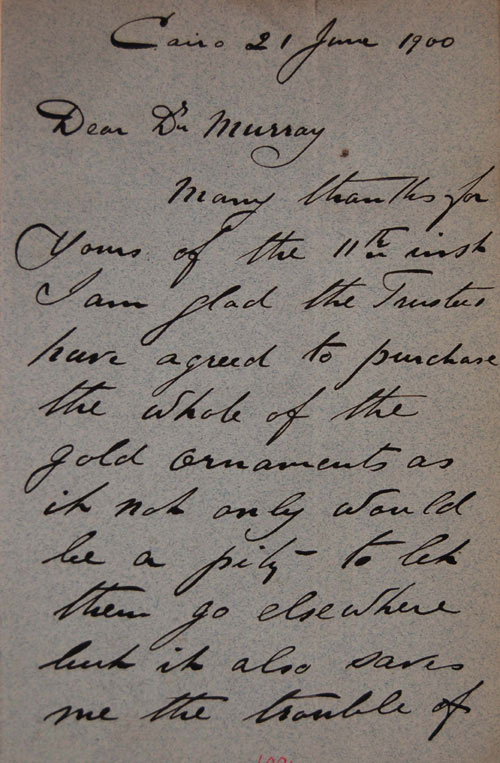 Cairo 21 June 1900
Dear Dr Murray
Many thanks for
Yours of the 11th inst
I am glad the Trustees
have agreed to purchase
the whole of the
gold ornaments as
it not only would
be a pity to let
them go elsewhere
but it also saves
me the trouble of